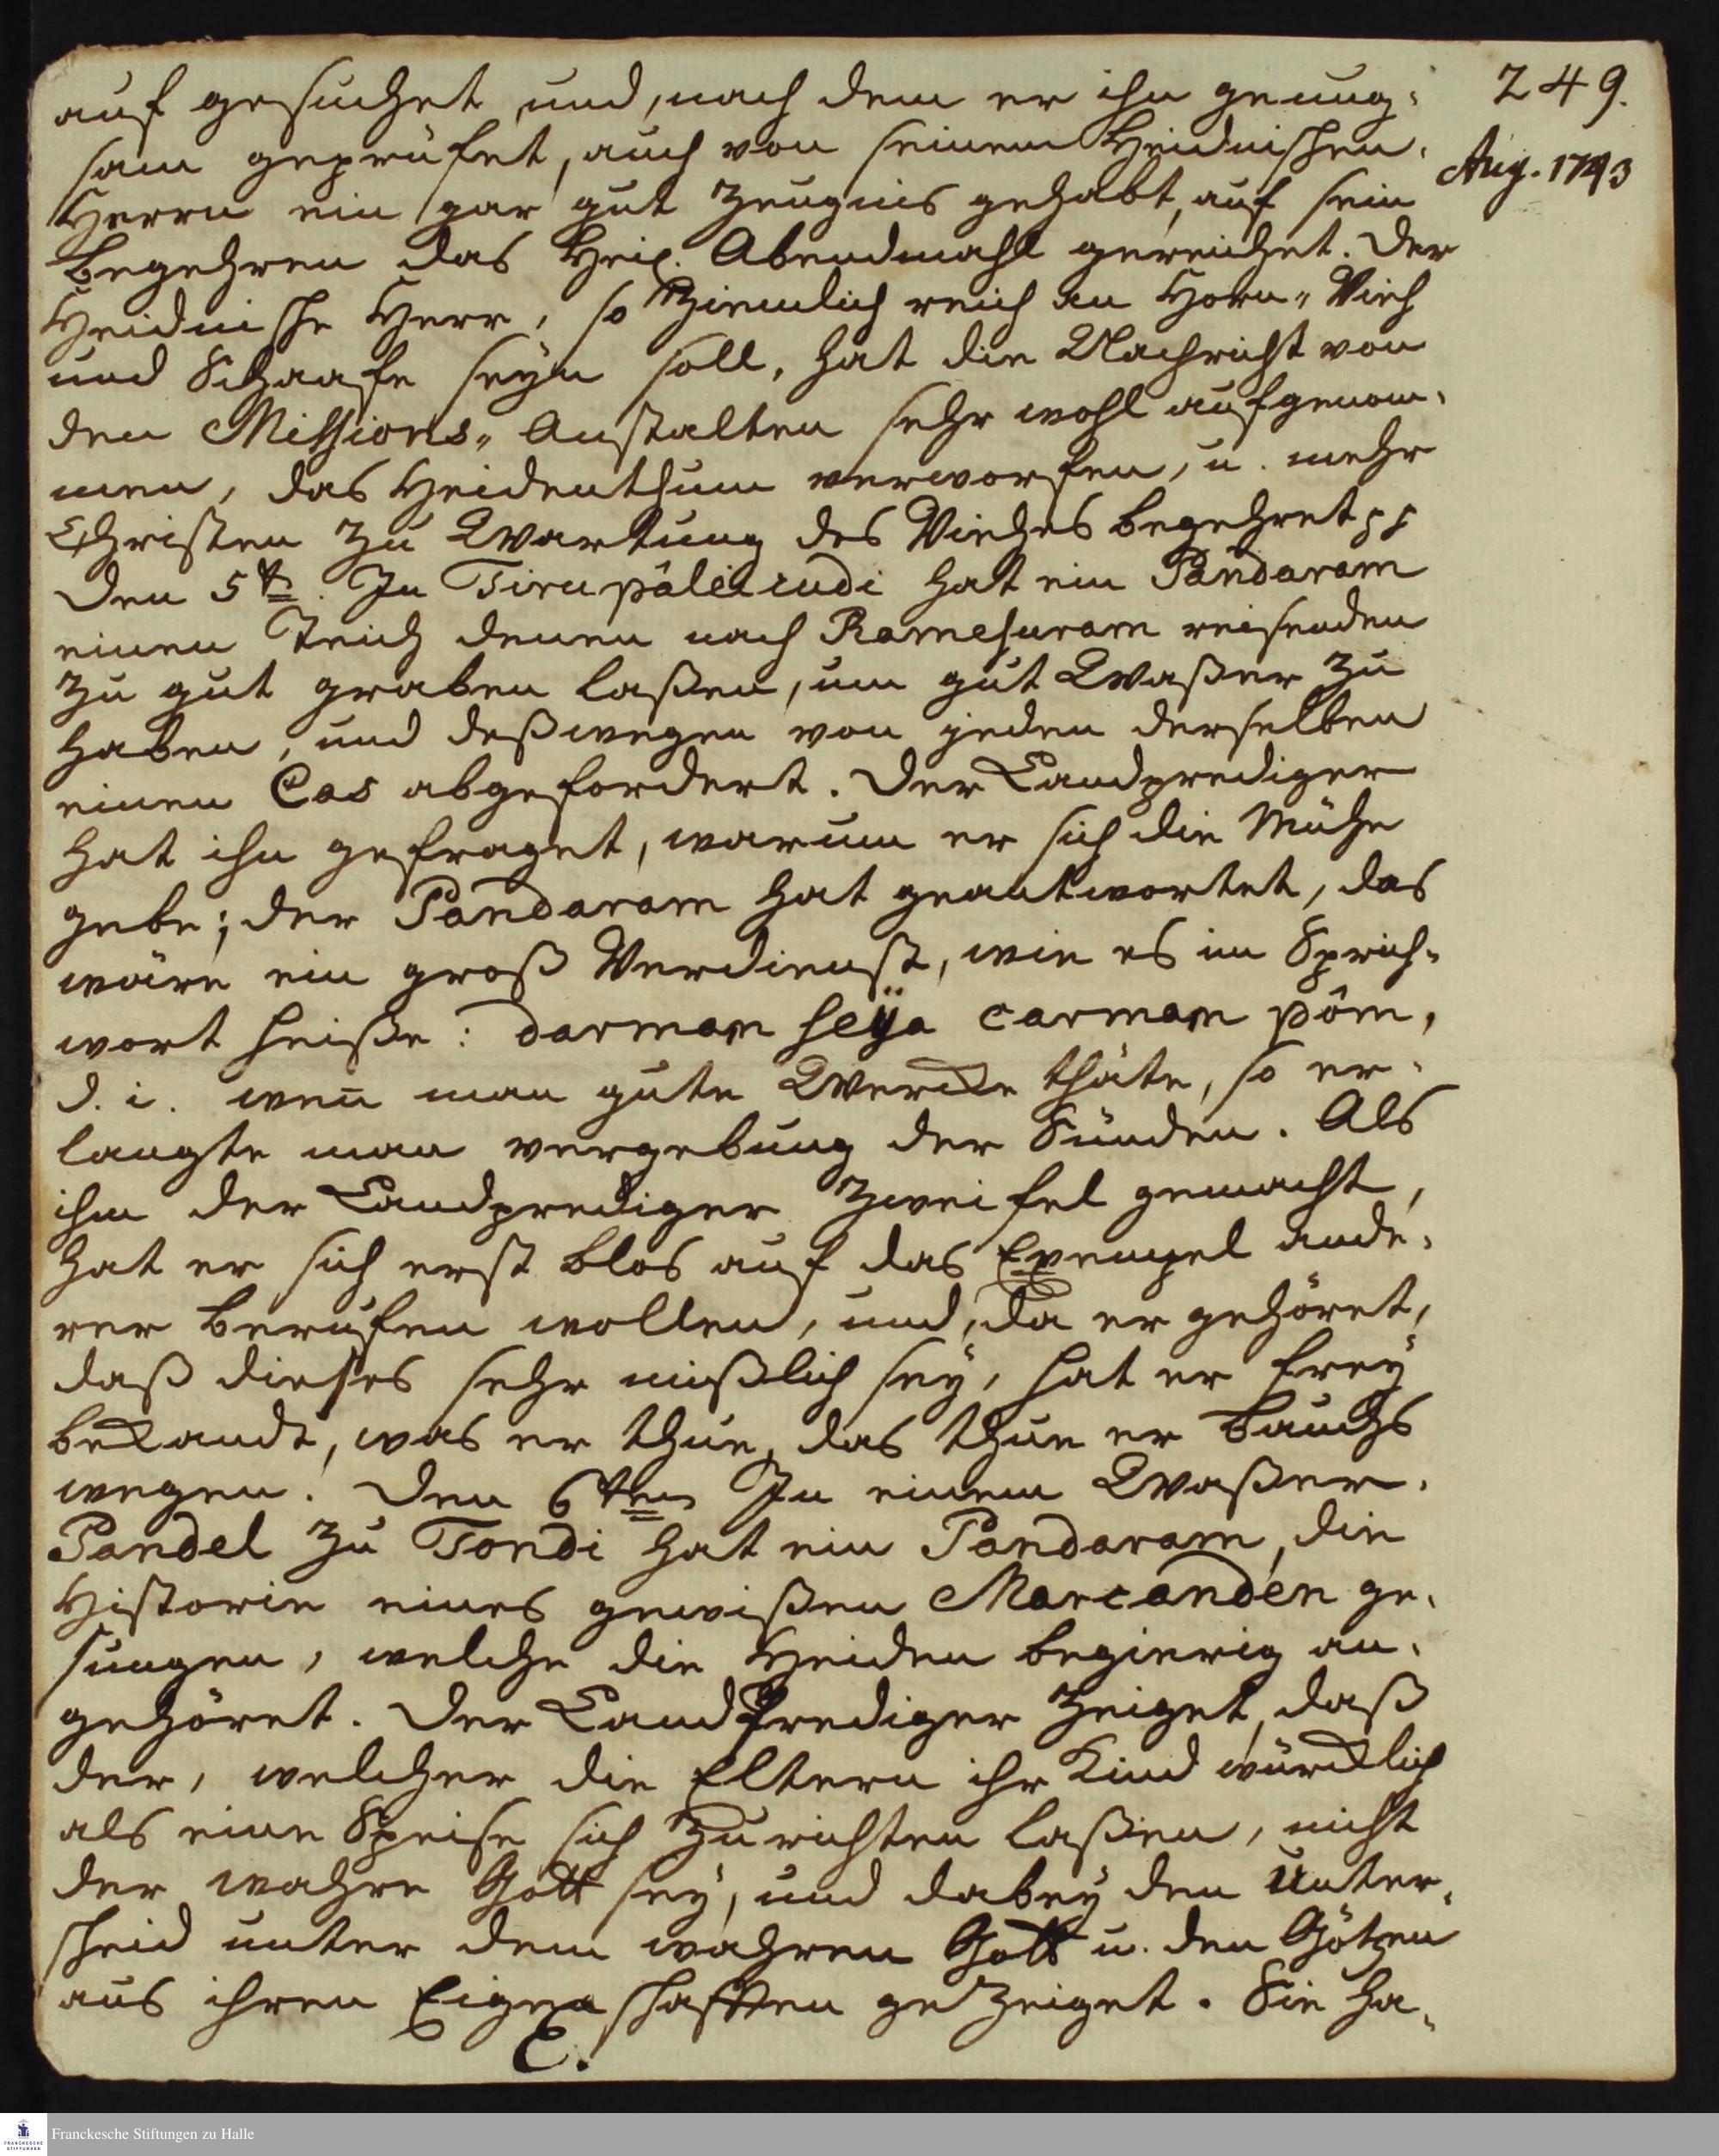 249.
Aug. 1743
auf gesuchet und, nach dem er ihn genug-
sam geprüfet, auch von seinem Heidnischen
Herrn ein gar gut Zeugnis gehabt, auf sein
Begehren das Heil. Abendmahl gereichet. Der
Heidnische Herr, so Ziemlich reich an Horn-Vieh
und Schaafe seyn soll, hat die Nachricht von
den Missions-Anstalten sehr wohl aufgenom-
men, das Heidenthum verworfen, u. mehr
Christen zu Wartung des Viehes begehret pp
Den 5t. In Tirupáleicudi hat ein Pandaram
einen Teich denen nach Ramesuram reisenden
zu gut graben laßen, um gut Waßer zu
haben, und deßwegen von jeden derselben
einen Cas abgefordert. Der Landprediger
hat ihn gefraget, warum er sich die Mühe
gebe; der Pandaram hat geantwortet, das
wäre ein groß Verdienst, wie es im Sprich-
wort heiße: darmam seÿa carmam pôm,
d. i. weñ man gute Wercke thäte, so er-
langte man vergebung der Sünden. Als
ihm der Landprediger Zweifel gemacht,
hat er sich erst blos auf das Exempel ande-
rer berufen wollen, und, da er gehöret,
daß dieses sehr mißlich seÿ, hat er freÿ
bekandt, was er thue, das thue er Bauchs
wegen. Den 6ten In einem Waßer-
Pandel zu Tondi hat ein Pandaram, die
Historie eines gewißen Marcanden ge-
sungen, welche die Heiden begierig an-
gehöret. Der LandPrediger zeiget, daß
der, welcher die Eltern ihr Kind würcklich
als eine Speise sich zurichten laßen, nicht
der wahre Gott seÿ, und dabeÿ den Unter-
scheid unter dem wahren Gott u. den Götzen
aus ihren Eigenschafften gezeiget. Sie ha-
C.
Franckesche Stiftungen zu Halle
FRANCKESCHE
STIFTUNGEN